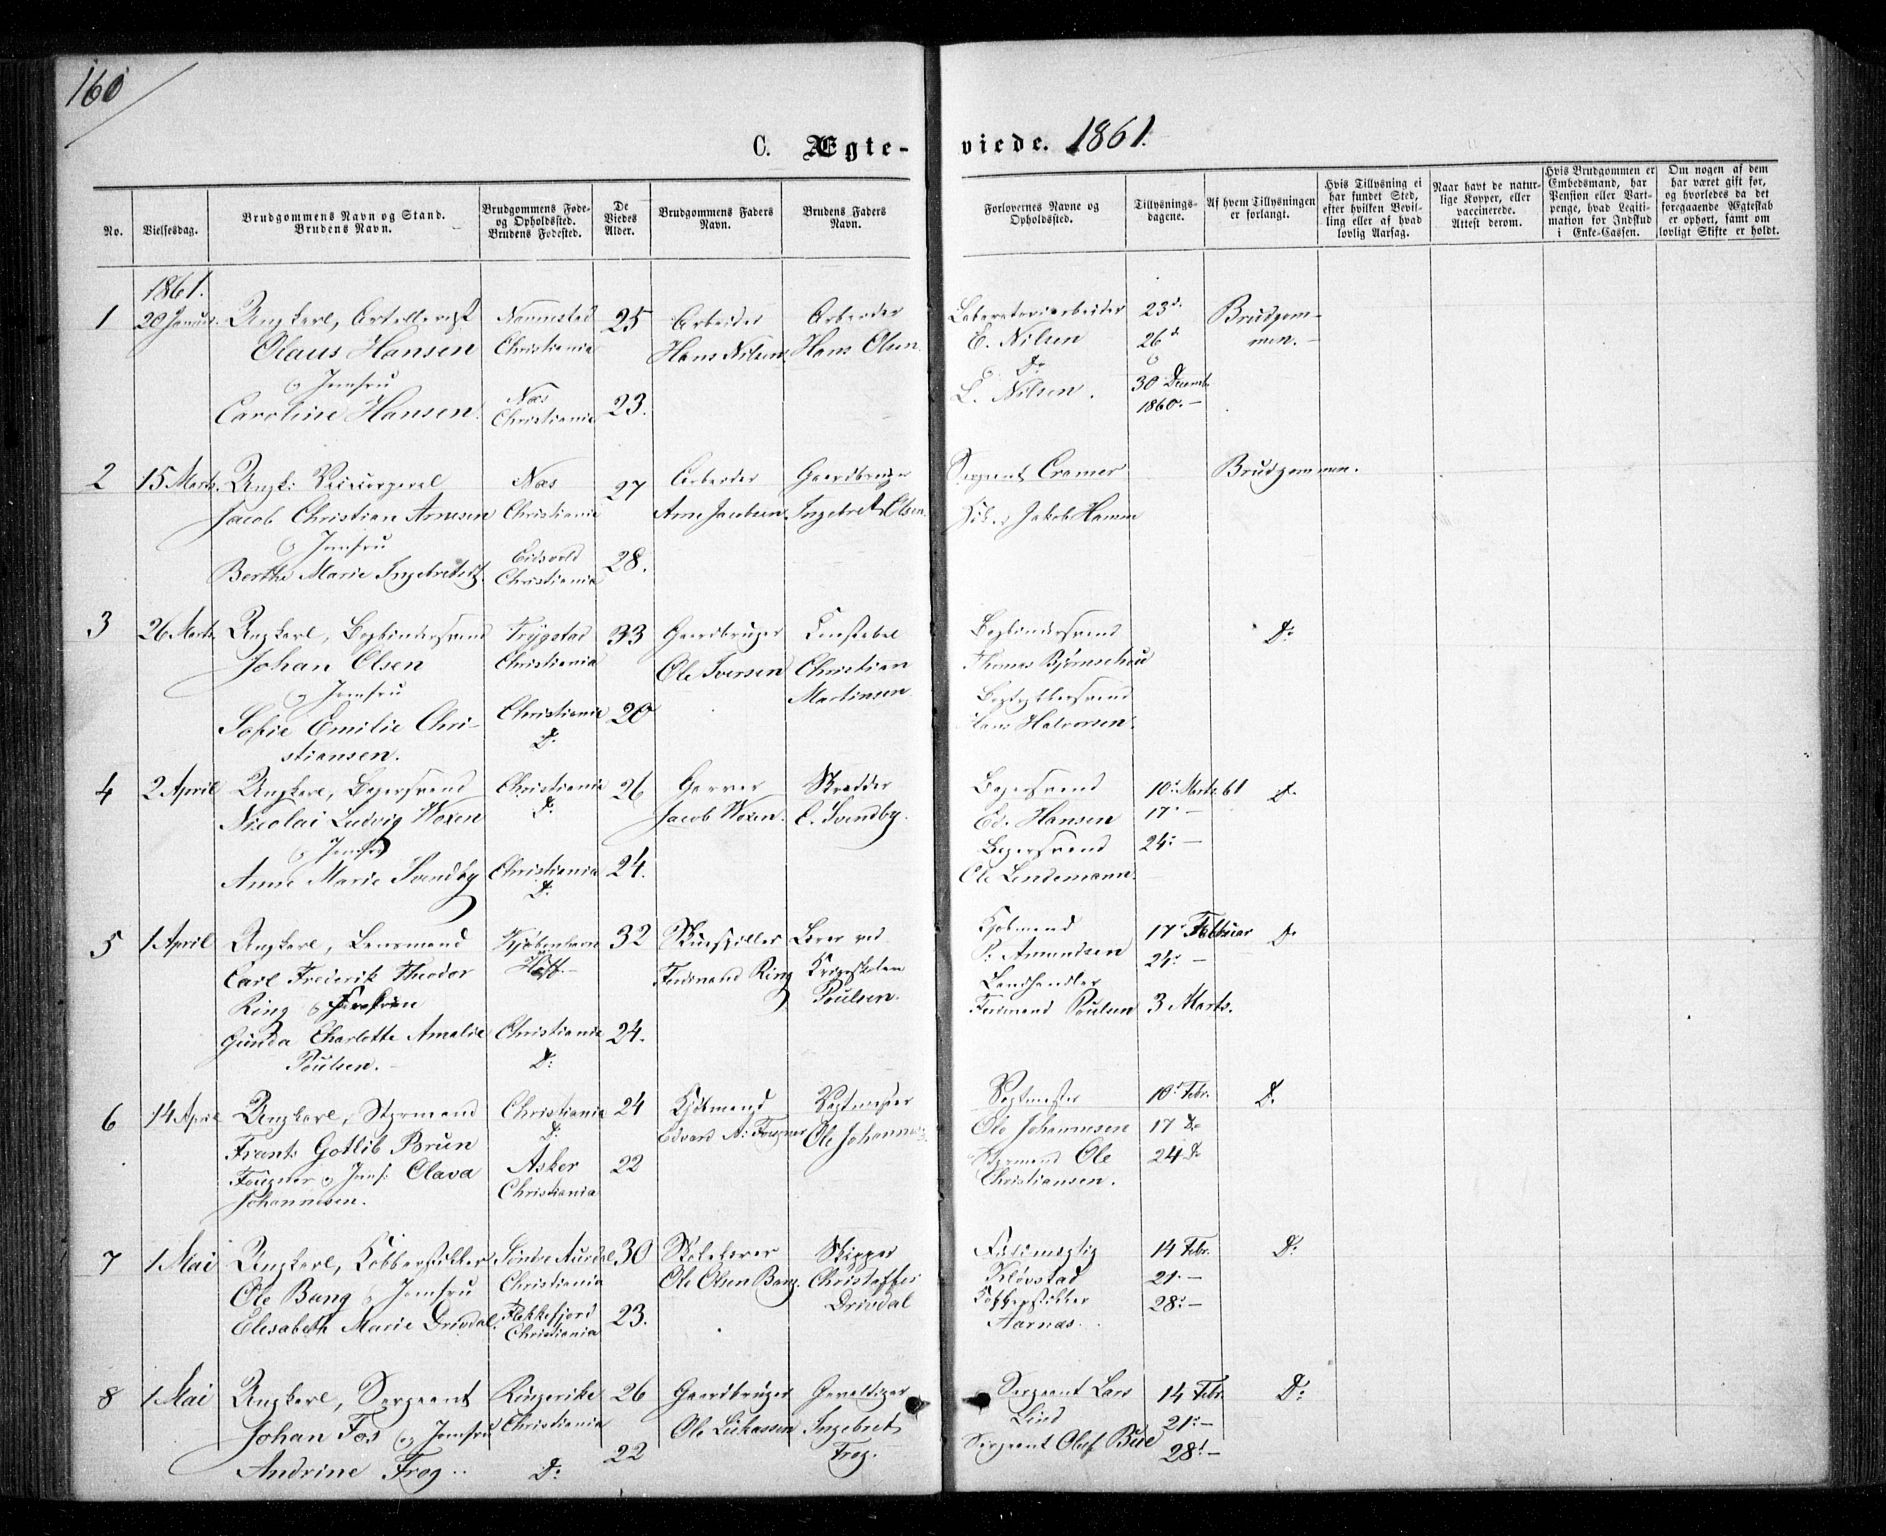 160
C. Ægte-
viede. 1861.
No.
Vielsesdag.
Brudgommens Navn og Stand.
Brudens Navn.
Brudgommens Føde-
og Opholdssted.
Brudens Fødested.
De
Viedes
Alder.
Brudgommens Faders
Navn.
Brudens Faders
Navn.
Forlovernes Navne og
Opholdssted.
Tillysnings-
dagene.
Af hvem Tillysningen
er forlangt.
Hvis Tillysning ei
har fundet Sted,
efter hvilken Bevil-
ling eller af hvad
lovlig Aarsag.
Naar havt de natur-
lige Kopper, eller
vaccinerede.
Attest derom.
Hvis Brudgommen er
Embedsmand, har
Pension eller Vart-
penge, hvad Legiti-
mation for Indskud
i Enke-Cassen.
Om nogen af dem
har været gift før,
og hvorledes da det
foregaaende Ægteskab
er ophørt, samt om
lovligt Skifte er holdt.
1861.
1
20 Januar
Ungkarl, Artellerist
Olaus Hansen
og Jomfru
Caroline Hansen.
Nannestad
Christiania
Næs
Christiania
25
23.
Arbeider
Hans Nilsen
Arbeider
Hans Olsen
Laboratoriearbeider
E. Nilsen
og Do
L. Nilsen.
23d
26d
og
30 Decemb.
1860.-
Brudgom-
men.-
2
15 Marts.
Ungk:
Jacob Christian Arnesen
og Jomfru
Berthe Marie Ingebretsd.
Næs
Christiania
Eidsvold
Christiania
27
28.
Arbeider
Arne Jacobsen
Gaardbruger
Ingebret Olsen
Sergeant Cramer
Jakob Hamm
Brudgommen.
3
26 Marts.
Ungkarl, Bogbindersvend
Johan Olsen
og Jomfru
Sofie Emilie Chri-
stiansen.
Trygstad
Christiania
Christiania
Do
33
20
Gaardbruger
Ole Iversen
Constabel
Christian
Martinsen
Bogbindersvend
Thomas
Bogtrykkersvend
Hans Halvorsen.
Do
4
2 April
Ungkarl, Bagersvend
Nicolai Ludvig Woxen
og Jomfru
Anne Marie Svendby
Christiania
Do
Christiania
Do
26
24.
Garver
Jacob Woxen.
Skrædder
E. Svendby.
Bagersvend
Ed. Hansen
Bagersvend
Ole Lindemann.
10d Marts 61
17 -
24 -
Do
5
1 April
Ungkarl, Lensmand
Carl Frederik Theodor
Ring og Frøken
Gunda Charlotte Amalie
Poulsen.
Kjøbenhavn
Hoff.-
Christiania
Do
32
24.
Skuespiller
Ferdinand Ring
Lærer ved
Krigsskolen
Poulsen.
Kjøbmand
P. Amundsen
Landhandler
Ferdinand Poulsen
17d Februar
24 -
3 Marts.
Do
6
14 April
Ungkarl, Styrmand
Frants Gotlib Brun
Fougner og Jomf: Olava
Johannesen.
Christiania
Do
Asker
Christiania
24
22
Kjøbmand
Edvard A: Fougner
Vagtmester
Ole Johannes.
Vagtmester
Ole Johannesen
Styrmand Ole
Christiansen.
10d Febr.
17 Do
24 Do
Do
7
1 Mai
Ungkarl, Kobberstikker
Ole Bang og Jomfru
Elisabeth Marie Drivdal.
Søndre Aurdal
Christiania
Flekkefjord
Christiania
30
23.
Skolelærer
Ole Olsen Bang
Skipper
Christoffer
Drivdal
Fuldmægtig
Kløvstad
Kobberstikker
Aarnæs.
14 Febr.
21 -
28 -
Do
8
1 Mai
Ungkarl, Sergeant
Johan Fos og Jomfru
Andrine Frog..
Ringerike
Christiania
Do
26
22
Gaardbruger
Ole Lukassen
Gevaldiger
Ingebret
Frog.
Sergeant Lars
Lind
Sergeant Oluf Bue
14 Febr.
21 -
28 -
Do